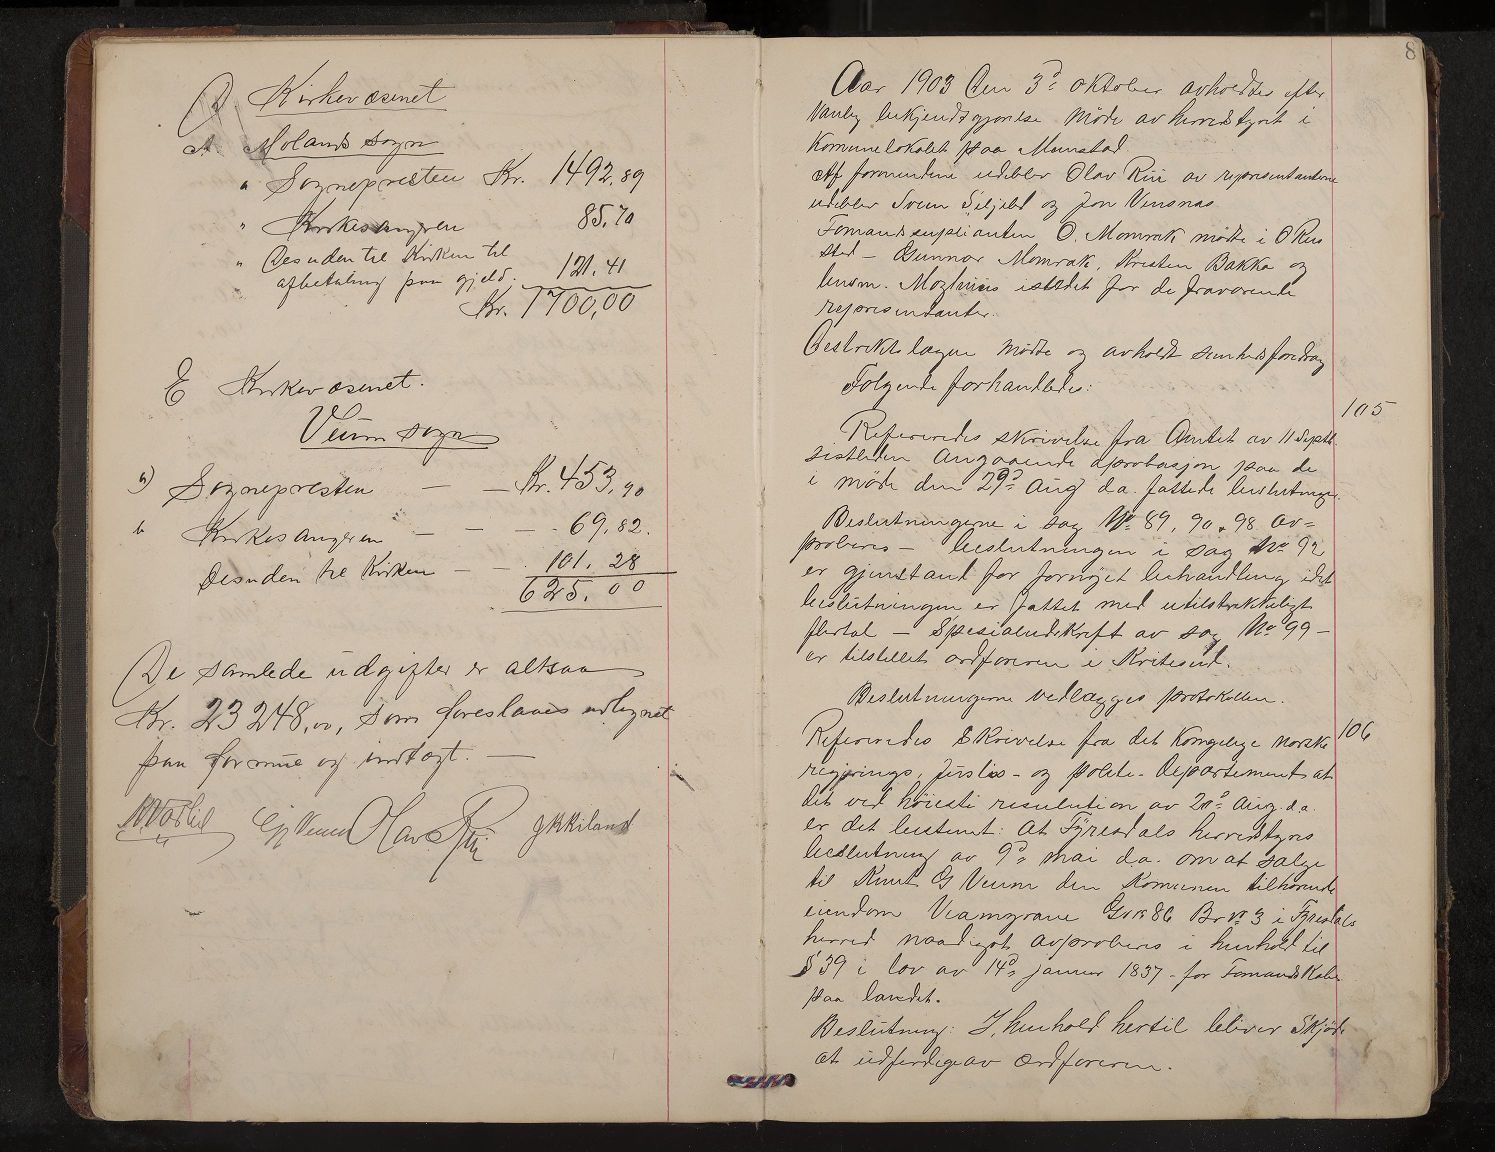 D Kirkevæsenet
A. Molands sogn
" Sognepresten Kr. 1492,89
" Kirkesangeren 85,70
" Desuden til Kirken til
afbetaling paa gjeld. 121.41
Kr. 1700,00
E Kirkevæsenet.
Veum sogn
a) Sognepresten — — Kr. 453,90
b Kirkesangeren — — - 69,82.
Desuden til Kirken — — 101.28
625.00
De samlede udgifter er altsaa
Kr. 23248,00, som foreslaaes udlignet
paa formue og indtægt. —
Olav Rui JKKiland
8
Aar 1903 Den 3d oktober avholdtes efter
vanlig bekjendtgjørelse møde av herredstyret i
Komunelokalet paa Momstad
Af formendene udeblev Olav Rui av representanterne
udeblev Svein Seljebt og Jon Vensnas
Formandssuplianten O. Momrak mødte i O Ruis
sted — Gunnar Momrak, Kristen Bakka og
lensm. istedet for de fraværende
representanter.
Destriktslægen mødte og avholdt sunhedsforedrag
Følgende forhandledes:
105
Refereredes skrivelse fra Amtet av 11 Septb.
sistleden angaaende aprobasjon paa de
i møde den 29d Aug d.a. fattede beslutninger.
Beslutningerne i sag No 89, 90 & 98 av=
proberes — beslutningen i sag No 92
er gjenstand for fornøyet behandling idet
beslutningen er fattet med utilstrækkeligt
flertal — Spesialudskrift av sag No 99 —
er tilstillet ordføreren i Kviteseid.
Beslutningerne vedlægges protokollen.
106
Refereredes Skrivelse fra det Kongelige norske
regjerings, Justis- og politi- Departement at
det ved høieste resulution av 20d Aug. d.a.
er det bestemt: At Tyresdals herredstyres
beslutning av 9d mai d.a. om at sælge
til Knut G Veum den Komunen tilhørende
eiendom Veamgrave Gno 86 Brno 3 i Tyresdals
herred naadigst avproberes i henhold til
§ 39 i lov av 14d januar 1837 - for Formandskaber
paa landet.
Beslutning: I henhold hertil bliver Skjøde
at udferdige av ordføreren.